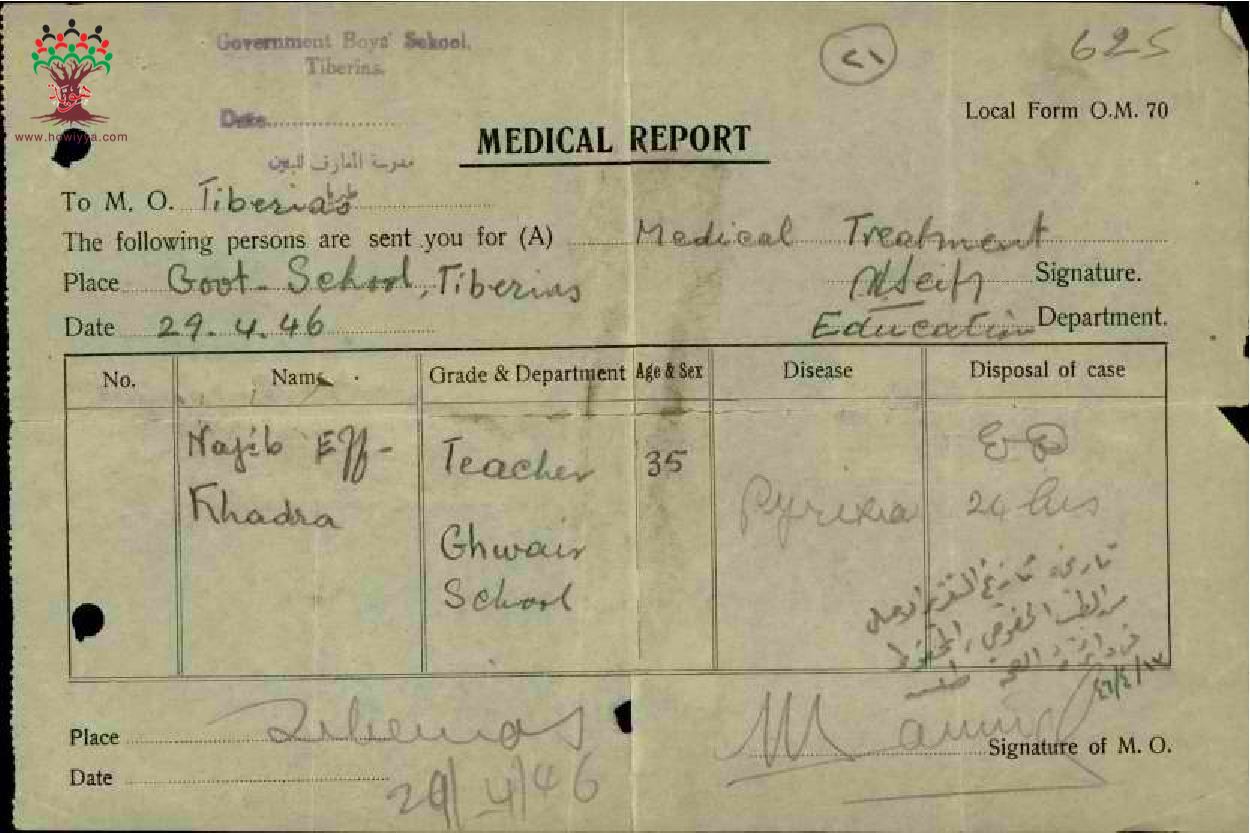 Government Boys' School,
Tiberias.
٢١
625
www.howiyya.com
Date....................
Local Form O.M. 70
MEDICAL REPORT
مدرسة المعارف للبنين
To M. O. Tiberias
The following persons are sent you for (A) Medical Treatment
Place Govt. School, Tiberias
Signature.
Date 29.4.46
Education Department.
No. Name Grade & Department Age & Sex Disease Disposal of case
Najib Eff- Teacher 35
Khadra Pyrexia 24 hrs
Ghwair
School
تاريخه تاريخ التقرير
Place Tiberias
Signature of M. O.
Date 29/4/46